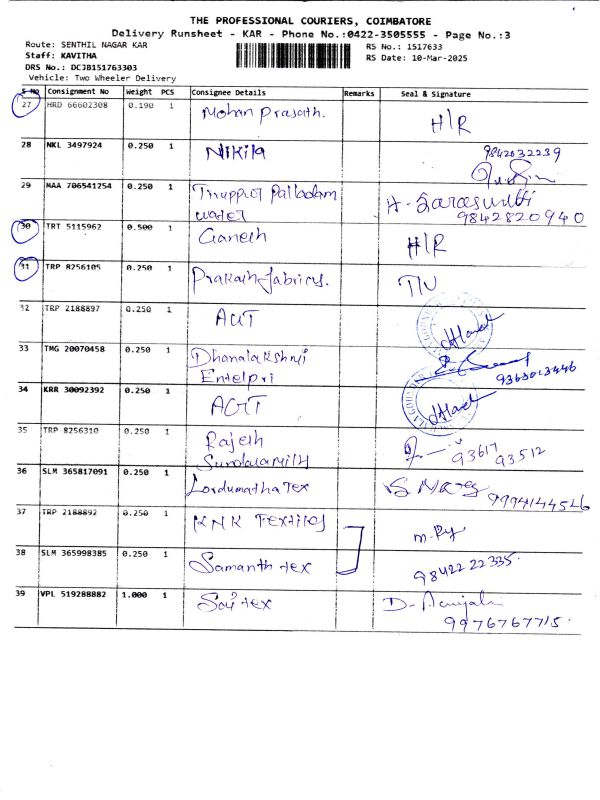 THE PROFESSIONAL COURIERS, COIMBATORE
Delivery Runsheet - KAR - Phone No.:0422-3505555 - Page No.:3
Route: SENTHIL NAGAR KAR RS No.: 1517633
Staff: KAVITHA RS Date: 10-Mar-2025
DRS No.: DCJB151763303
Vehicle: Two Wheeler Delivery
S No Consignment No Weight PCS Consignee Details Remarks Seal & Signature
27 HRD 66602308 0.190 1 Mohan Prasath. H/R
28 NKL 3497924 0.250 1 Nikila 9842032239
29 MAA 706541254 0.250 1 Tiruppur Palladam
water 9842820940
30 TRT 5115962 0.500 1 Ganesh H/R
31 TRP 8256105 0.250 1 Prakash fabrics.
32 TRP 2188897 0.250 1
33 TMG 20070458 0.250 1 Dhanalakshmi
Entelpri 9363013446
34 KRR 30092392 0.250 1
35 TRP 8256310 0.250 1 Rajesh 93617
93512
36 SLM 365817091 0.250 1 Lordumatha Tex 9994144526
37 TRP 2188892 0.250 1 KNK Textiles
38 SLM 365998385 0.250 1 Samanth tex 9842222335.
39 VPL 519288882 1.000 1 Sai tex
9976767715.